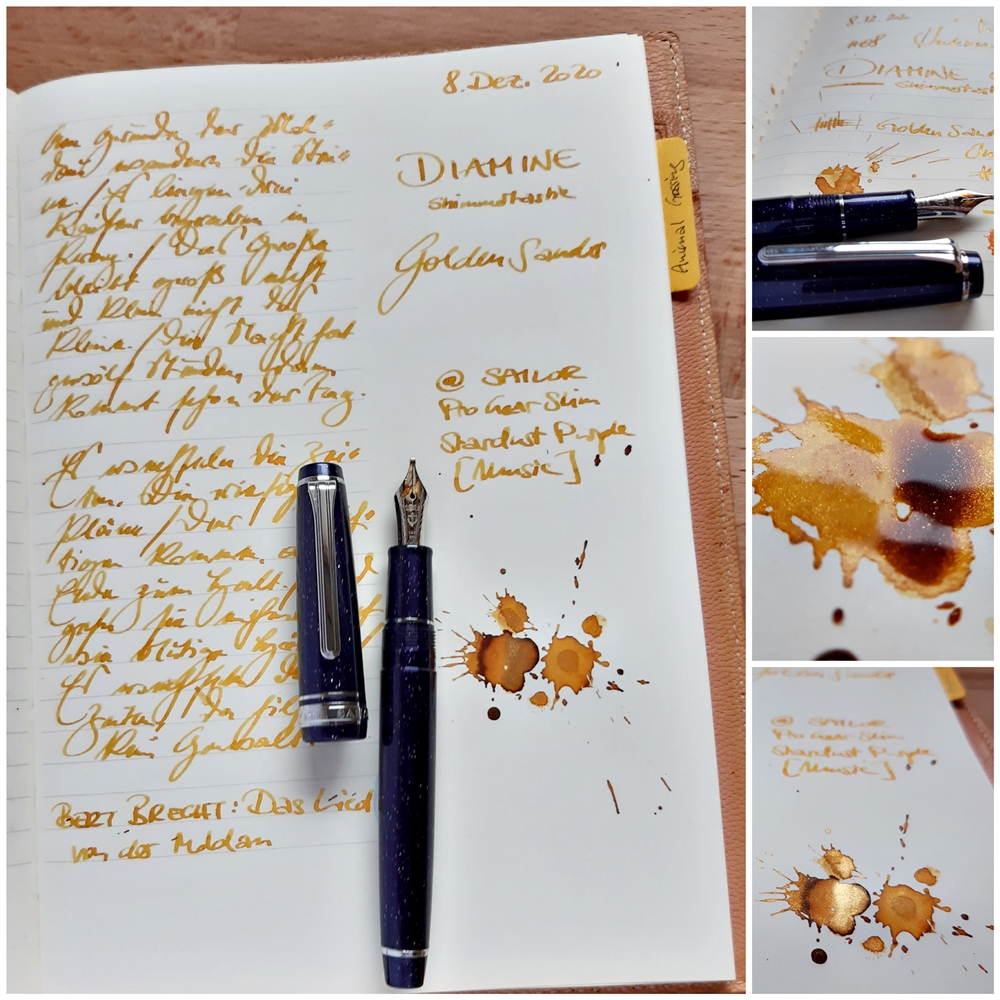 8. Dez. 2020
Am Grunde der Mol-
dau wandern die Stei-
ne. / Es liegen drei
Kaiser begraben in
Prag. / Das Große
bleibt groß nicht
und klein nicht das
Kleine. / Die Nacht hat
zwölf Stunden, dann
kommt schon der Tag.
Es wechseln die Zei-
ten. Die riesig
Pläne / der
tigen kommen
Ende zum Halt.
gehn sie
wie blutige
Es wechseln die
Zeiten / da hilf
kein Gewalt.
BERT BRECHT: Das Lied
von der Moldau
DIAMINE
Shimmertastic
Golden Sands
@ SAILOR
Pro Gear Slim
Stardust Purple
[Music]
Animal Crossing
8.12.2020
DIAMINE
Shimmertast
Golden Sand
@ SAILOR
Pro Gear Slim
Stardust Purple
[Music]